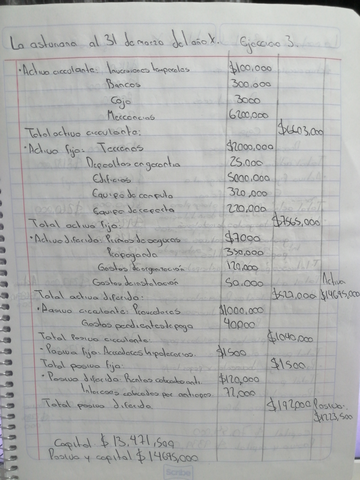 La asturiana al 31 de marzo del año X. Ejercicio 3.
• Activo circulante: Inversiones temporales $100,000
Bancos 300,000
Caja 3000
Mercancias 6200,000
Total activo circulante: $6603,000
• Activo fijo: Terrenos $2000,000
Depositos en garantia 25,000
Edificios 5000,000
Equipo de computo 320,000
Equipo de reparto 220,000
Total activo fijo: $7565,000
• Activo diferido: Primas de seguros $7000
Propaganda 350,000
Gastos de organización 120,000
Gastos de instalación 50,000 Activo
Total activo diferido: $527,000 $14695,000
• Pasivo circulante: Proveedores $1000,000
Gastos pendientes de pago 40000
Total Pasivo circulante $1040,000
• Pasivo fijo: Acreedores hipotecarios $1500
Total pasivo fijo: $1500
• Pasivo diferido: Rentas cobradas anti. $120,000
Intereses cobrados por anticipado 72,000
Total pasivo diferido $192,000 Pasivo:
$1223,500
Capital $13,471,500
Pasivo y capital $14695,000
Scribe